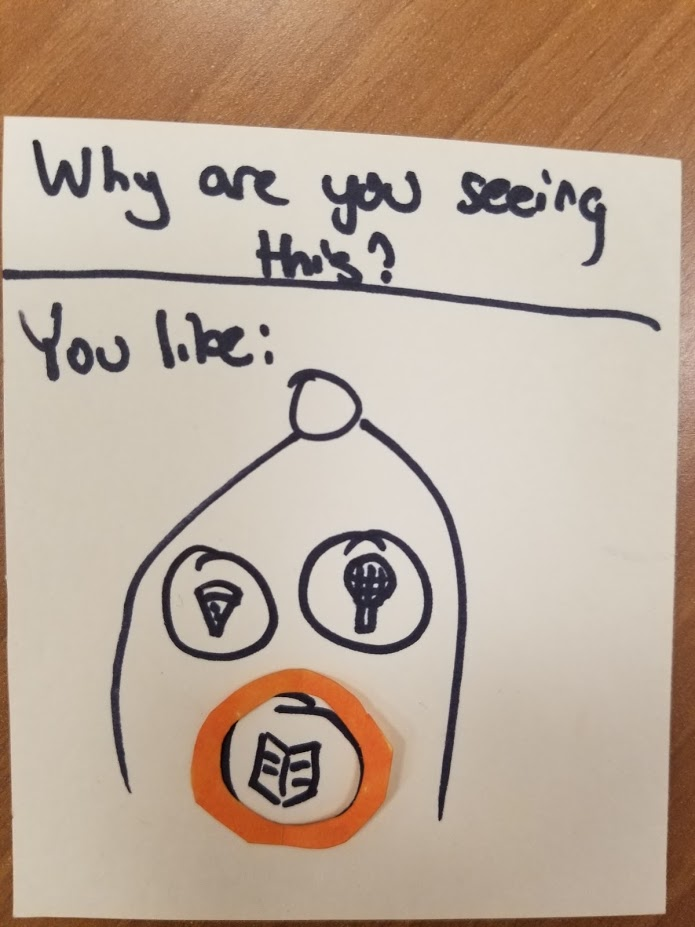 Why are you seeing
this?
You like: